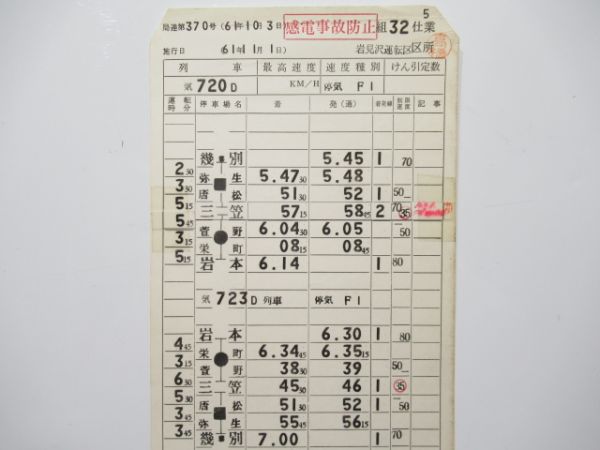 5
局達第370号(61年10月3日)感電事故防止組32仕業
施行日 (61年11月1日) 岩見沢運転区区所
列車 最高速度 速度種別 けん引定数
気720D KM/H 停気 F1
運転時分 停車場名 着 発(通) 着発線 制限速度 記事
幾別 5.45 1 70
2 30
弥生 5.47 30 5.48
3 30
唐松 51 30 52 1 50
5 15
三笠 57 15 58 45 2 70 35
5 45
萱野 6.04 30 6.05 50
3 15
栄町 08 15 08 45
5 15
岩本 6.14 1 80
気723D 列車 停気 F1
岩本 6.30 1 80
4 45
栄町 6.34 45 6.35 15
3 15
萱野 38 30 39 50
6 30
三笠 45 30 46 1 35
5 30
唐松 51 30 52 1 50
3 45
弥生 55 45 56 15
3 45
幾別 7.00 1 70